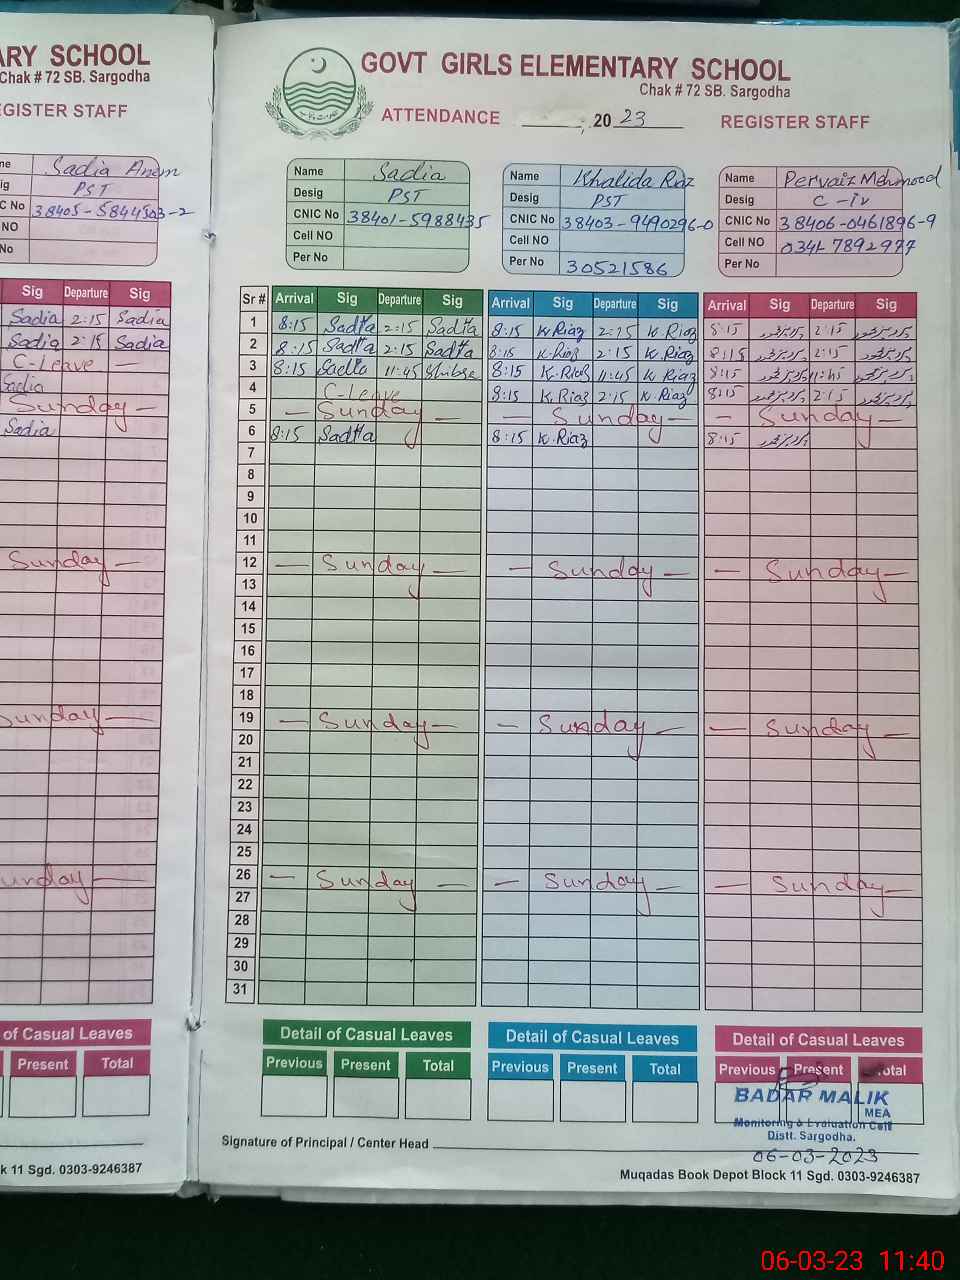 ARY SCHOOL
Chak # 72 SB. Sargodha
EGISTER STAFF
me Sadia Anem
ig PST
C No 38405-5844503-2
NO
No
Sig Departure Sig
Sadia 2:15 Sadia
Sadia 2:15 Sadia
C-Leave —
Sadia
Sunday —
Sadia
Sunday —
Sunday —
unday —
of Casual Leaves
Present Total
k 11 Sgd. 0303-9246387
GOVT GIRLS ELEMENTARY SCHOOL
Chak # 72 SB. Sargodha
ATTENDANCE ______, 20 23 REGISTER STAFF
Name Sadia
Desig PST
CNIC No 38401-5988435
Cell NO
Per No
Name Khalida Riaz
Desig PST
CNIC No 38403-9490296-0
Cell NO
Per No 30521586
Name Pervaiz Mehmood
Desig C-iv
CNIC No 38406-0461896-9
Cell NO 0341 7892977
Per No
Sr # Arrival Sig Departure Sig Arrival Sig Departure Sig Arrival Sig Departure Sig
1 8:15 Sadia 2:15 Sadia 8:15 K.Riaz 2:15 K.Riaz 8:15 2:15
2 8:15 Sadia 2:15 Sadia 8:15 K.Riaz 2:15 K.Riaz 8:15 2:15
3 8:15 Sadia 11:45 8:15 K.Riaz 11:45 K.Riaz 8:15 11:45
4 C-Leave 8:15 K.Riaz 2:15 K.Riaz 8:15 2:15
5 — Sunday — — Sunday — — Sunday —
6 8:15 Sadia 8:15 K.Riaz 8:15
7
8
9
10
11
12 — Sunday — — Sunday — — Sunday —
13
14
15
16
17
18
19 — Sunday — — Sunday — — Sunday —
20
21
22
23
24
25
26 — Sunday — — Sunday — — Sunday —
27
28
29
30
31
Detail of Casual Leaves Detail of Casual Leaves Detail of Casual Leaves
Previous Present Total Previous Present Total Previous Present Total
BADAR MALIK
MEA
Monitoring & Evaluation Cell
Distt. Sargodha.
06-03-2023
Signature of Principal / Center Head
Muqadas Book Depot Block 11 Sgd. 0303-9246387
06-03-23 11:40